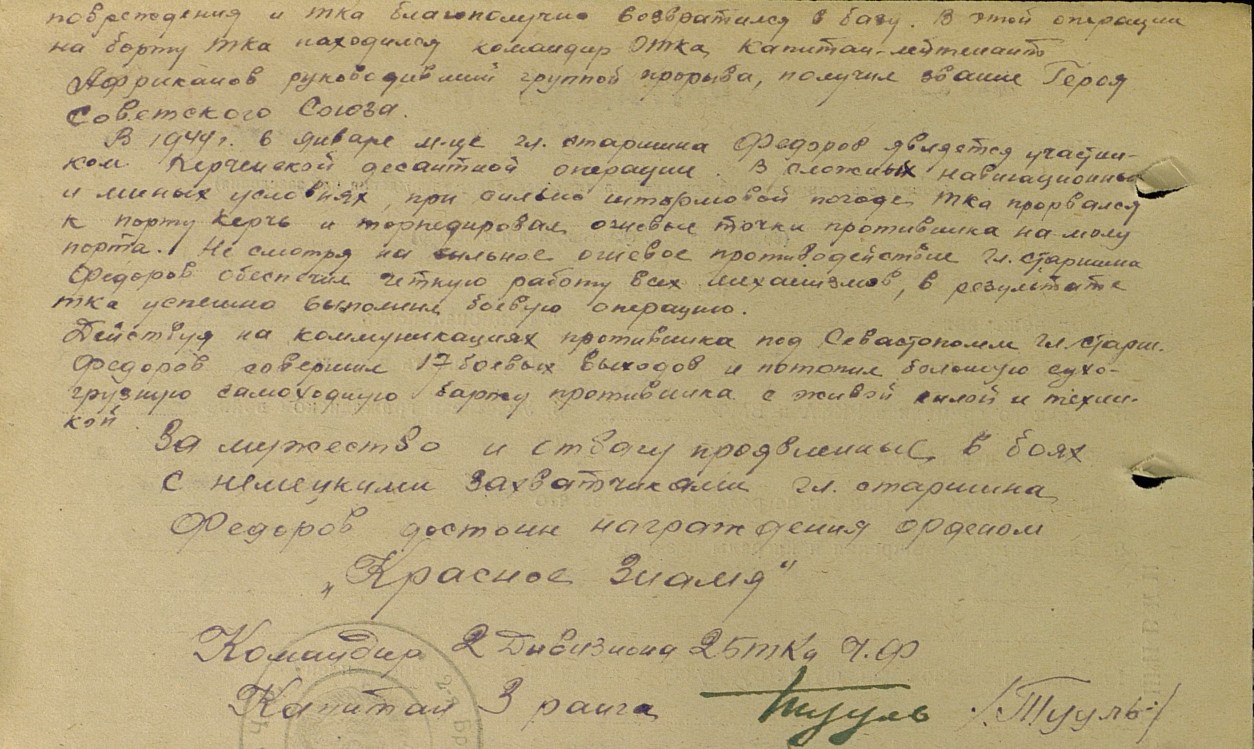 повреждения и тка благополучно возвратился в базу. В этой операции
на борту тка находился командир Отка капитан-лейтенант
Африканов руководивший группой прорыва, получил звание Героя
Советского Союза.
В 1944 г. в январе м-це гл. старшина Федоров является участни-
ком Керченской десантной операции. В сложных навигационных
и миных условиях при сильно штормовой погоде тка прорвался
к порту Керчь и торпедировал огневые точки противника на молу
порта. Не смотря на сильное огневое противодействие гл. старшина
Федоров обеспечил четкую работу всех механизмов, в результате
тка успешно выполнил боевую операцию.
Действуя на коммуникациях противника под Севастополем гл. старш.
Федоров совершил 17 боевых выходов и потопил большую сухо-
грузную самоходную баржу противника с живой силой и техни-
кой
За мужество и отвагу проявленные в боях
с немецкими захватчиками гл. старшина
Федоров достоин награждения орденом
„Красное Знамя"
Командир 2 Дивизиона 2БТКа Ч.Ф
Капитан 3 ранга Тууль /Тууль/